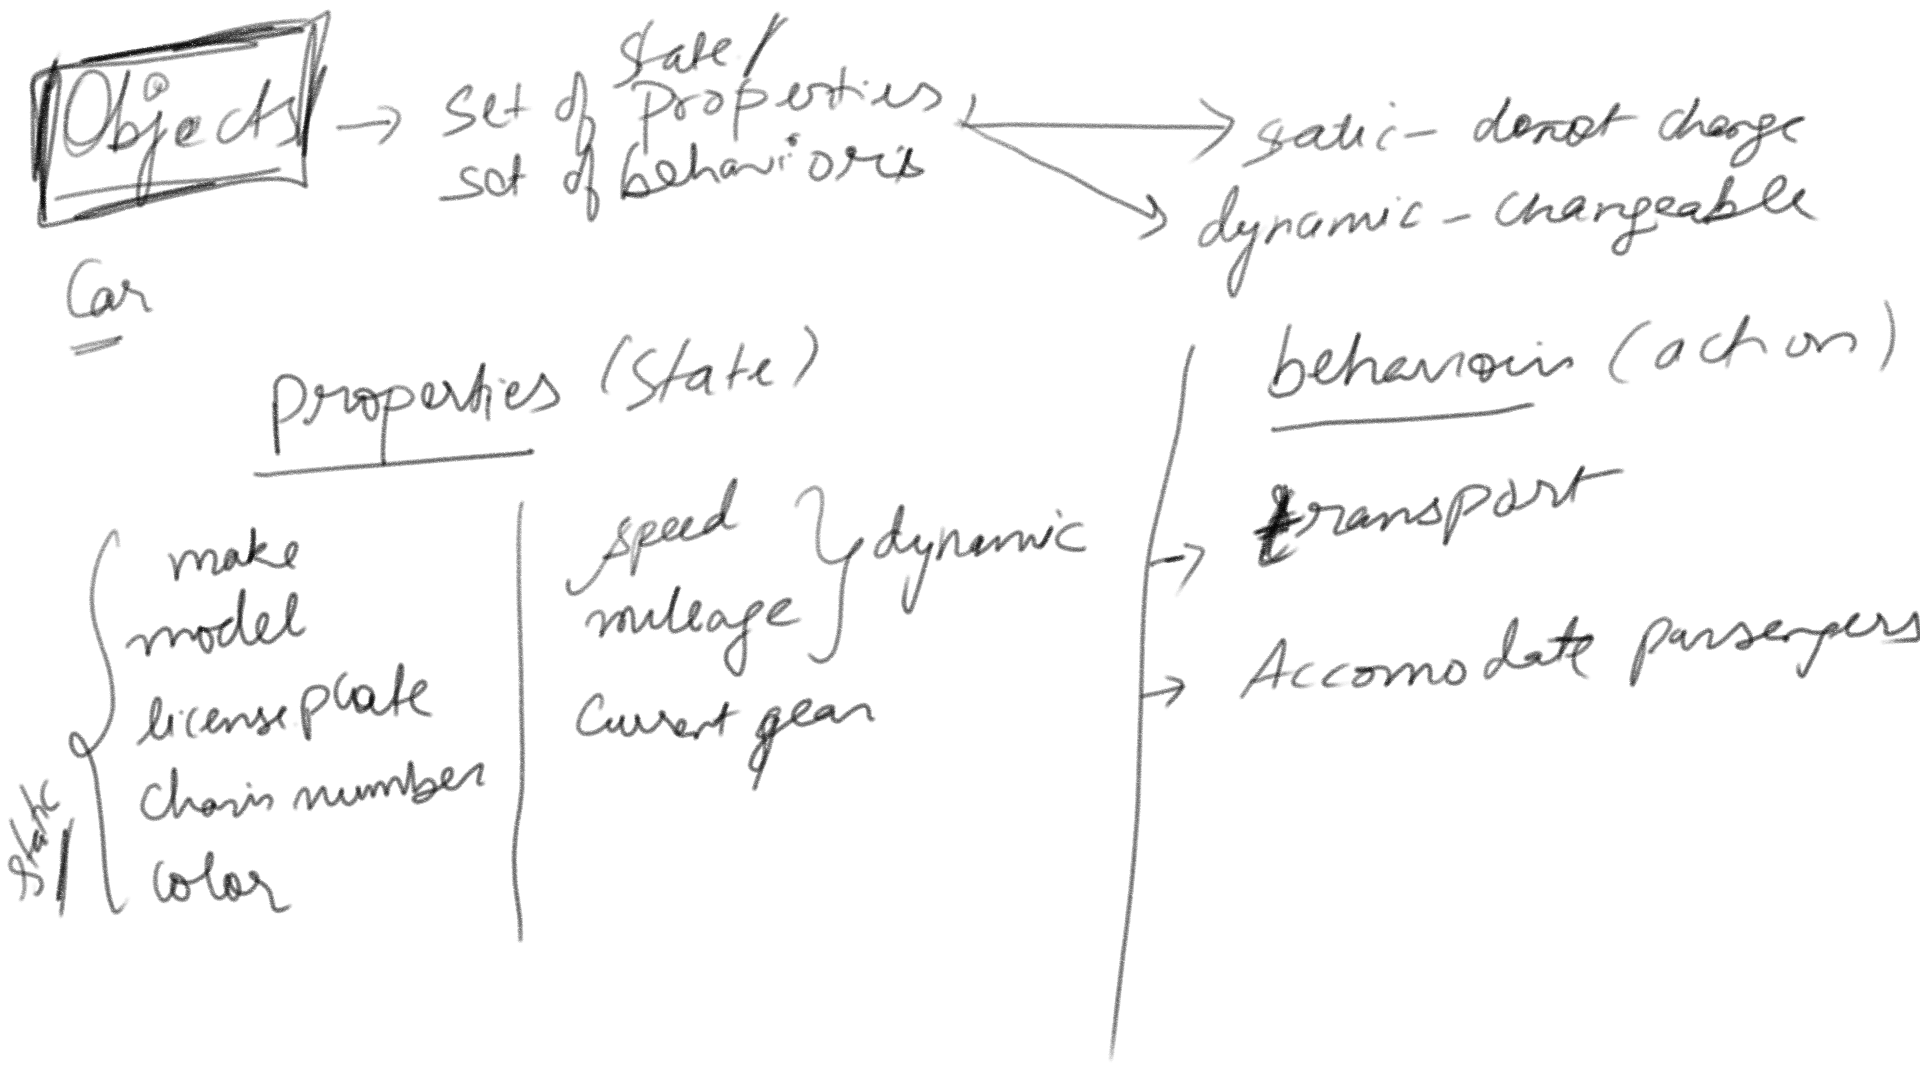 Objects → set of state/ properties
set of behavioris
static - donot change
dynamic - changeable
Car
properties (state)
behaviour (action)
make
model
licenseplate
chasis number
color
static
speed
mileage
dynamic
Current gear
→ transport
→ Accomodate passengers